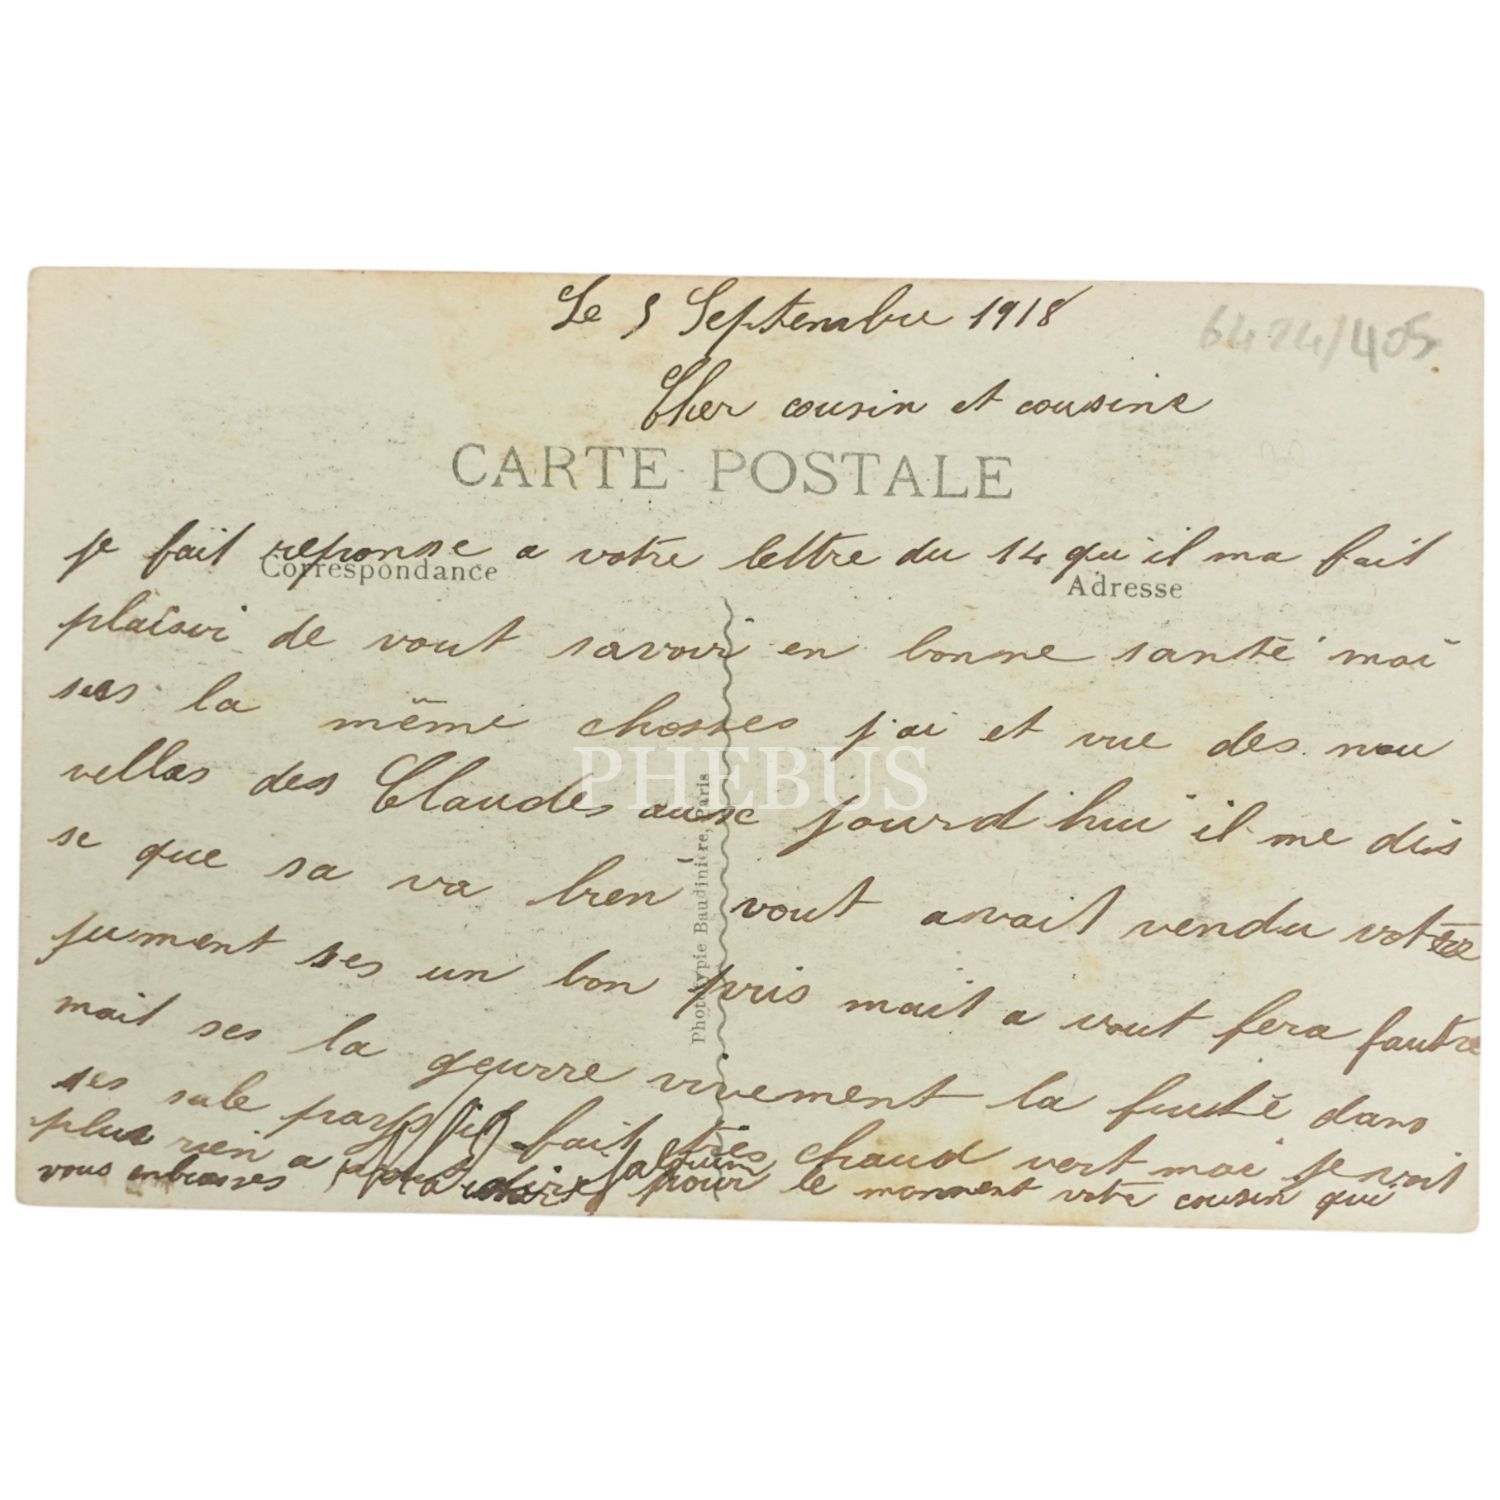 Le 5 Septembre 1918
6424/405
Cher cousin et cousine
CARTE POSTALE
je fait reponse a votre lettre du 14 qu'il ma fait
Correspondance
Adresse
plaisir de vout savoir en bonne santé moi
ses la même chosses j'ai et vue des nou
velles des Claudes aux jourd'hui il me dis
PHEBUS
se que sa va bien vout avait vendu votre
jument ses un bon pris mait a vout fera fautre
mait ses la geurre vivement la fuité dans
ses sale pays il fait très chaud vert moi je voit
plus rien a dire pour le moment votre cousin qui
vous enbrasses
Phototypie Baudinière, Paris